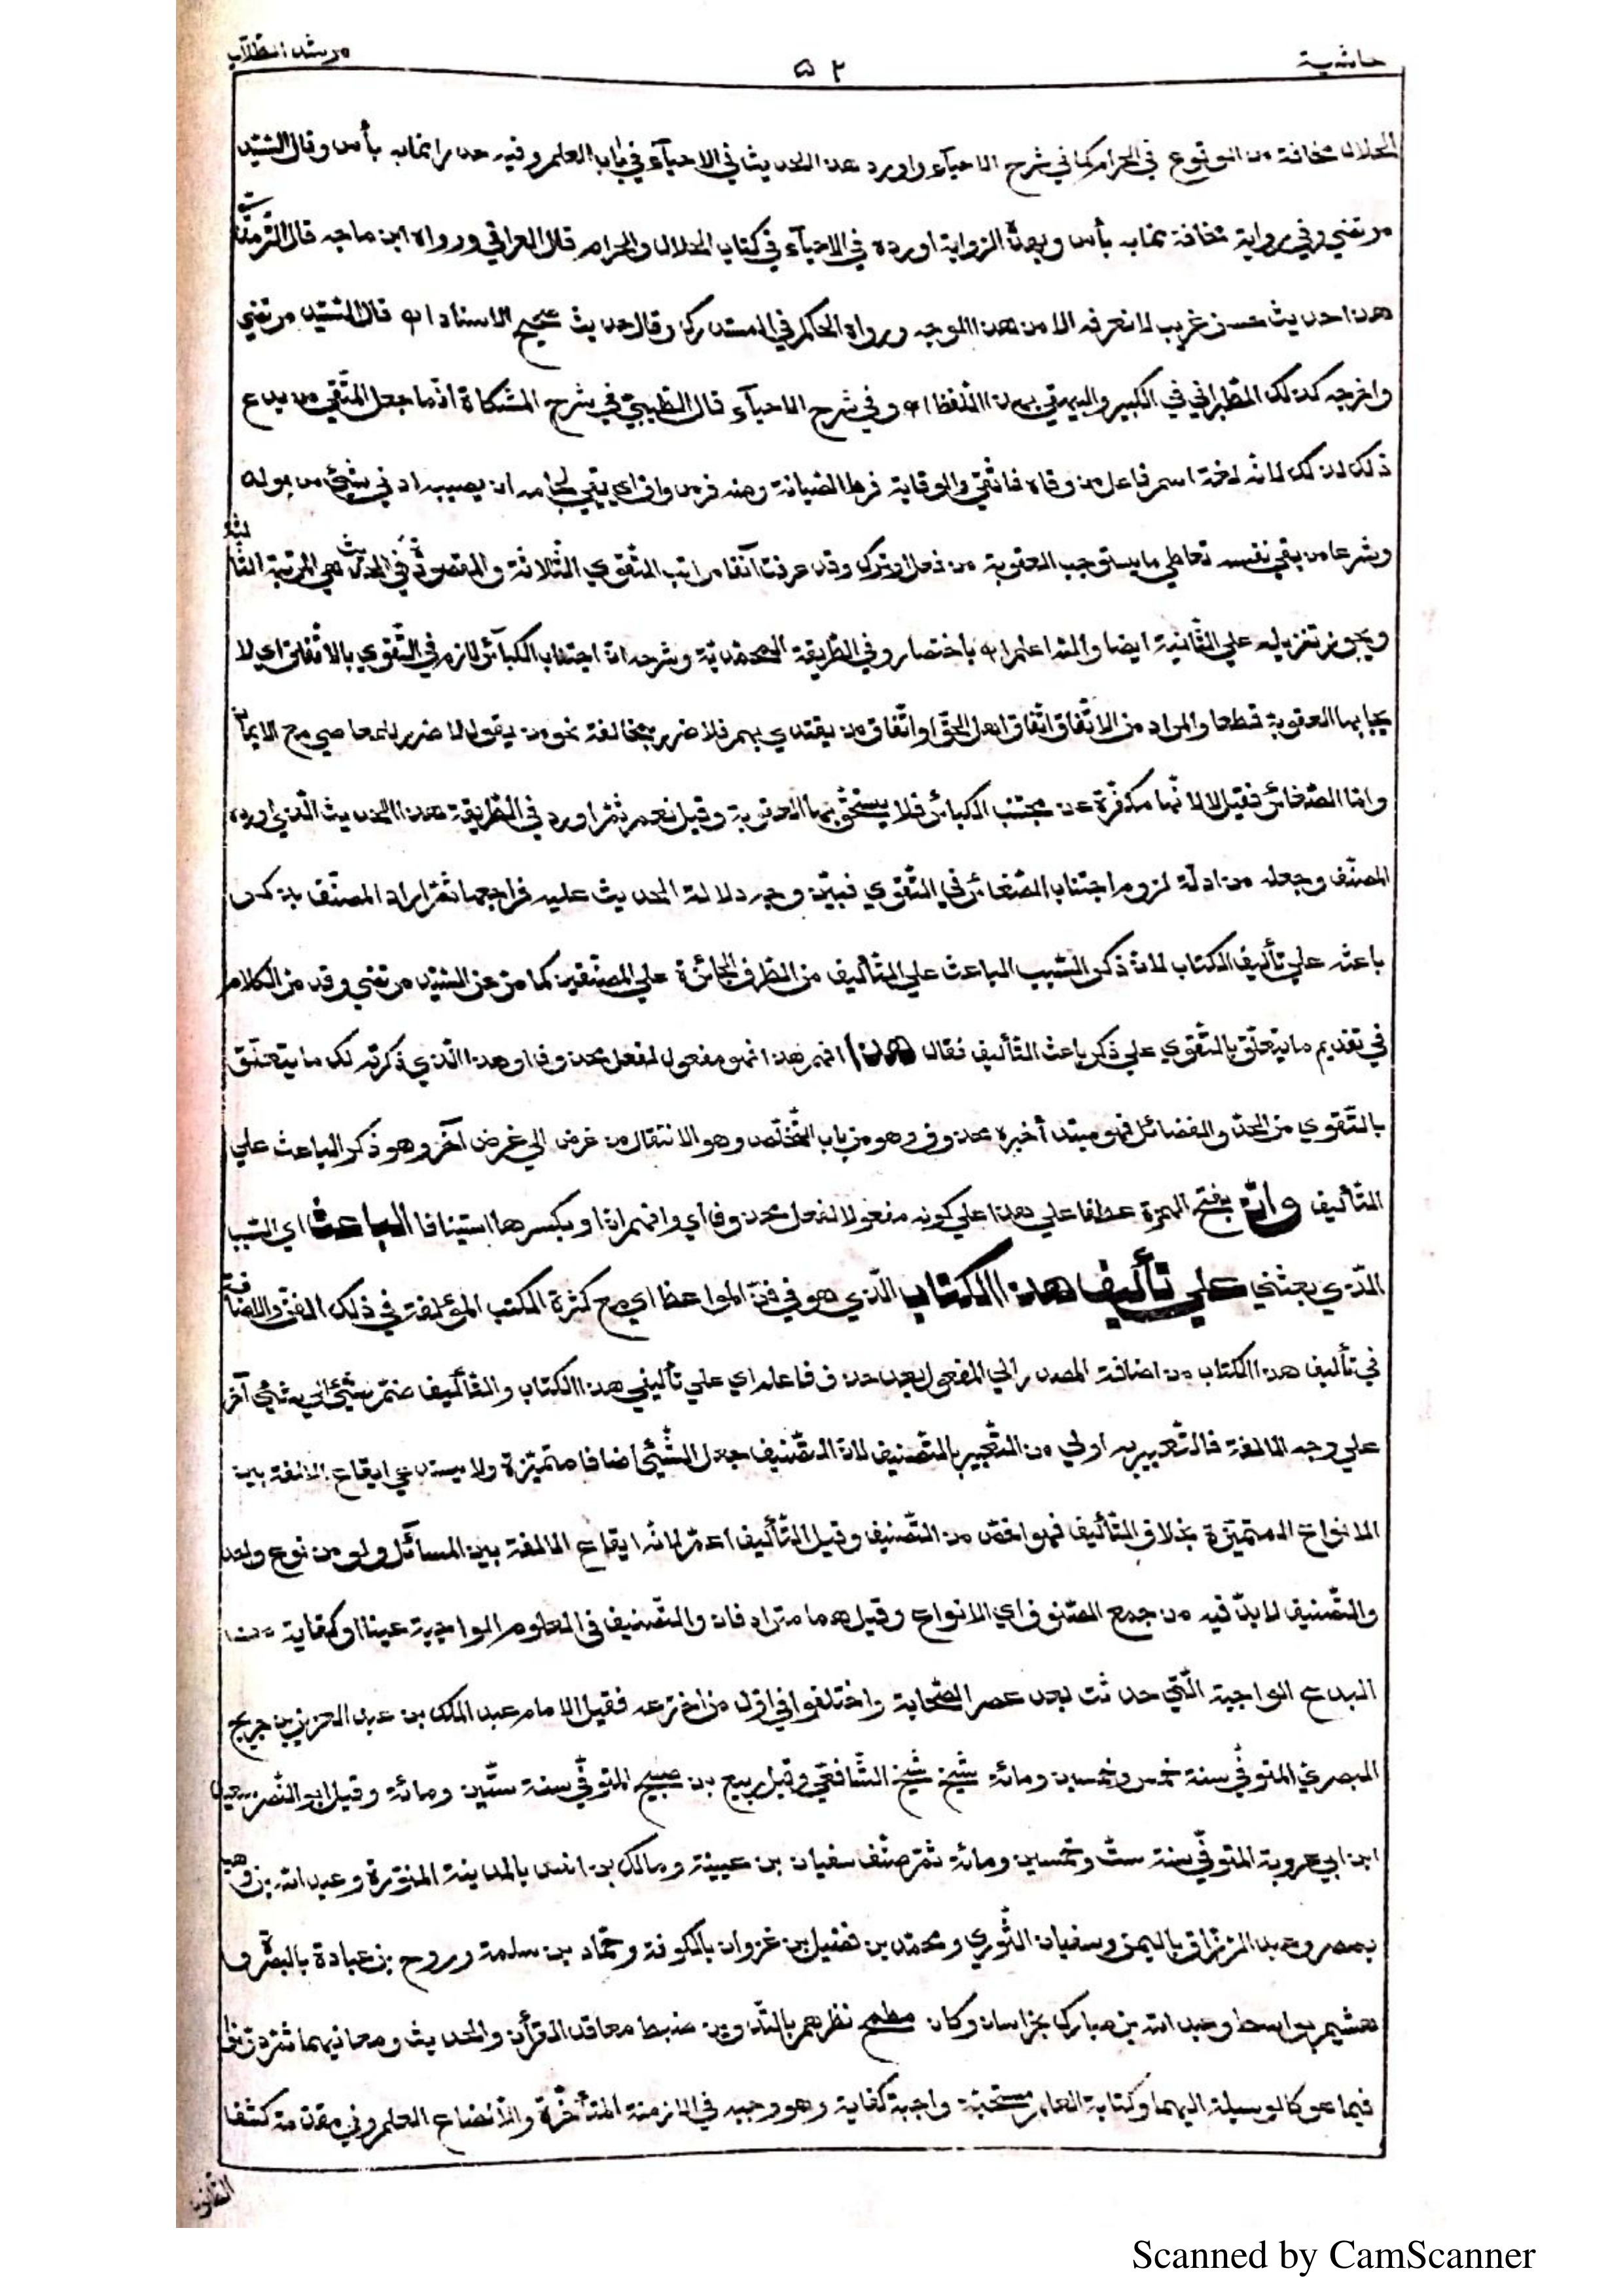 حاشية ٥٢ مرشد الطلاب
الحلال مخافة من الوقوع في الحرام كما في شرح الاحيآء واورد هذا الحديث في الاحيآء في باب العلم وفيه حذرا مما به بأس وقال السّيّد
مرتضي وفي رواية مخافة مما به بأس وبهذه الرواية اورده في الاحيآء في كتاب الحلال والحرام قال العراقي ورواه ابن ماجه قال التّرمذيّ
هذا حديث حسن غريب لا نعرفه الا من هذا الوجه ورواه الحاكم في المستدرك وقال حديث صحيح الاسناد اه قال السّيّد مرتضي
واخرجه كذلك الطّبراني في الكبير والبيهقي بهذا اللّفظ اه وفي شرح الاحيآء قال الطّيبيّ في شرح المشكاة انّما جعل المتّقي من يدع
ذلك لذلك لانّه لغة اسم فاعل من وقاه فاتّقي والوقاية فرط الصّيانة ومنه فرس واق اي يقي لجامه ان يصيبه ادني شيئ من بوله
وشرعا من يقي نفسه تعاطي ما يستوجب العقوبة من فعل او ترك وقد عرفت آنفا مراتب التّقوي الثّلاثة والمقصودة في الحديث هي المرتبة الثّالثة
ويجوز تنزيله علي الثّانية ايضا والله اعلم اه باختصار وفي الطّريقة المحمّديّة وشرحه انّ اجتناب الكبآئر لازم في التّقوي بالاتّفاق اي لا
بها العقوبة قطعا والمراد من الاتّفاق اتّفاق اهل الحقّ او اتّفاق من يقتدي بهم فلا ضرر بمخالفة نحو من يقول لا ضرر للمعاصي مع الايمان
وامّا الصّغائر فقيل لا لانّها مكفّرة عن مجتنب الكبائر فلا يستحقّ بها العقوبة وقيل نعم ثمّ اورد في الطّريقة هذا الحديث الّذي اورده
المصنّف وجعله من ادلّة لزوم اجتناب الصّغائر في التّقوي فبيّن وجه دلالة الحديث عليه فراجعها ثمّ اراد المصنّف ان يذكر
باعثه علي تأليف الكتاب لانّ ذكر السّبب الباعث علي التّأليف من الطّرق الجائزة علي المصنّفين كما مرّ عن السّيّد مرتضي وقد مرّ الكلام
في تقديم ما يتعلّق بالتّقوي علي ذكر باعث التّأليف فقال هذا افهم هذا فهو مفعول لفعل محذوف او هذا الّذي ذكرته لك ما يتعلّق
بالتّقوي من الحدّ والفضائل فهو مبتدأ خبره محذوف وهو من باب التّخلّص وهو الانتقال من غرض الي غرض آخر وهو ذكر الباعث علي
التّأليف وانّ بفتح الهمزة عطفا علي هذا علي كونه مفعولا لفعل محذوف اي وافهم انّ او بكسرها استينافا الباعث اي السّبب
الّذي بعثني علي تأليف هذا الكتاب الّذي هو في فنّ المواعظ اي مع كثرة الكتب المؤلّفة في ذلك الفنّ والاضافة
في تأليف هذا الكتاب من اضافة المصدر الي المفعول بعد حذف فاعله اي علي تأليفي هذا الكتاب والتّأليف ضمّ شيئ الي شيئ آخر
علي وجه الالفة فالتّعبير به اولي من التّعبير بالتّصنيف لانّ التّصنيف جعل الشّيئ اصنافا متميّزة ولا يستدعي ايقاع الالفة بين
الانواع المتميّزة بخلاف التّأليف فهو اخصّ من التّصنيف وقيل التّأليف اعمّ لانّه ايقاع الالفة بين المسآئل ولو من نوع واحد
والتّصنيف لا بدّ فيه من جمع الصّنوف اي الانواع وقيل هما مترادفان والتّصنيف في العلوم الواجبة عينا او كفاية من
البدع الواجبة الّتي حدثت بعد عصر الصّحابة واختلفوا في اوّل من اخترعه فقيل الامام عبد الملك بن عبد العزيز بن جريج
البصريّ المتوفّي سنة خمس وخمسين ومائة شيخ شيخ الشّافعيّ وقيل ربيع بن صبيح المتوفّي سنة ستّين ومائة وقيل ابو النّصر سعيد
ابن ابي عروبة المتوفّي سنة ستّ وخمسين ومائة ثمّ صنّف سفيان بن عيينة ومالك بن انس بالمدينة المنوّرة وعبد الله بن وهب
بمصر وعبد الرّزّاق باليمن وسفيان الثّوري ومحمّد بن فضيل بن غزوان بالكوفة وحمّاد بن سلمة وروح بن عبادة بالبصرة و
هشيم بواسط وعبد الله بن مبارك بخراسان وكان مطمح نظرهم بالتّدوين ضبط معاقد القرأن والحديث ومعانيهما ثمّ دوّنوا
فيما هو كالوسيلة اليهما وكتابة العلم مستحبّة واجبة كفاية وهو وجيه في الازمنة المتأخّرة والّا لضاع العلم وفي مقدّمة كشف